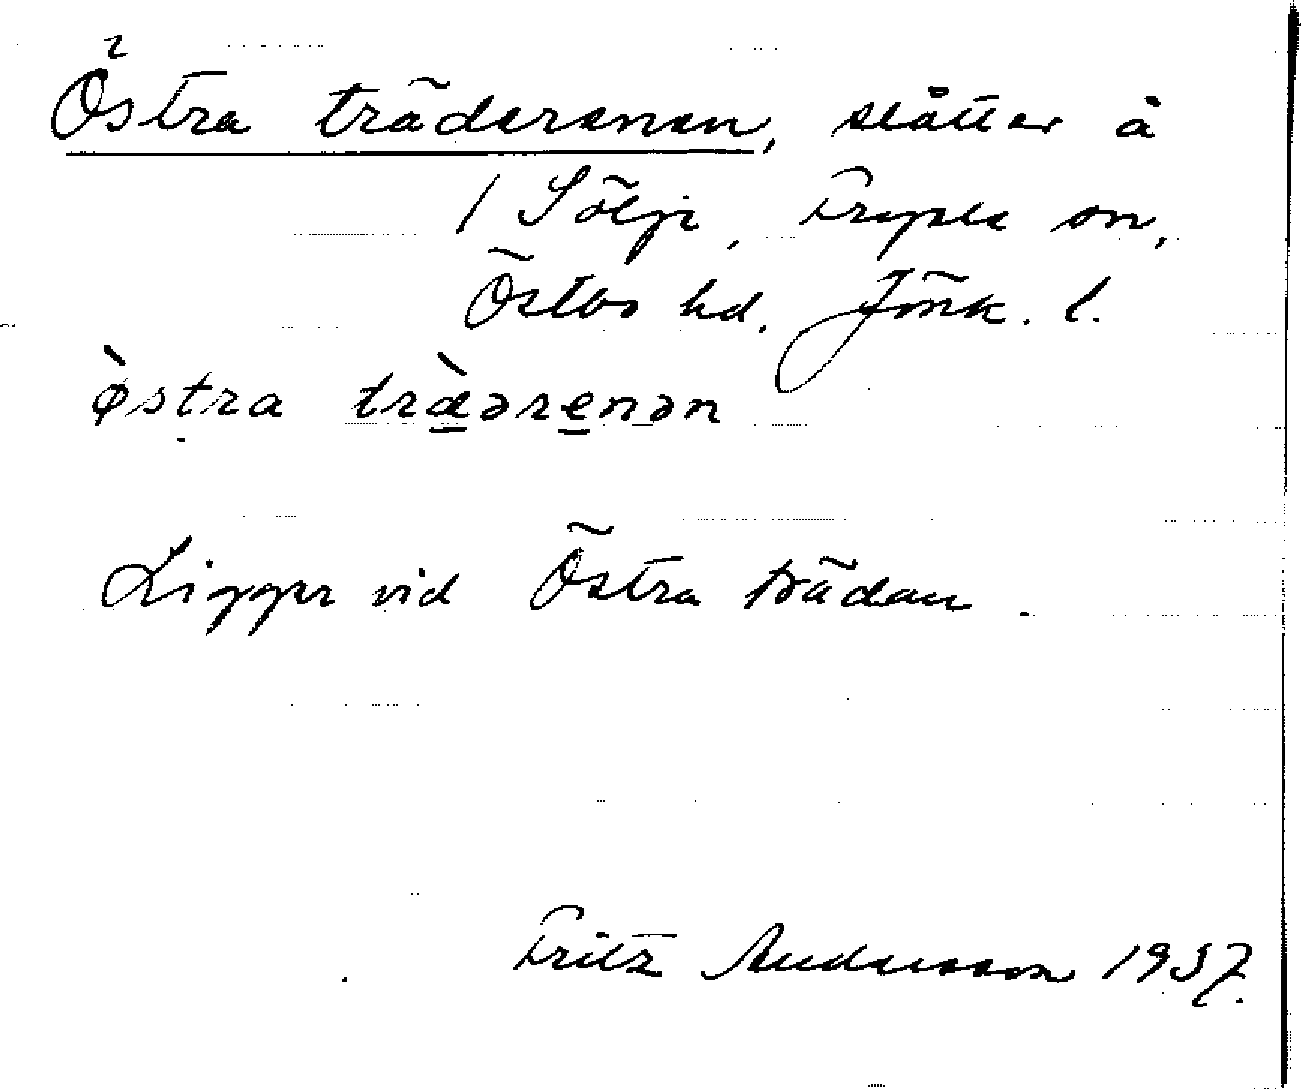 Östra träderenen, slåtter å
1 Sölje, Fryele sn,
Östbo hd. Jönk. l.
òstra træ̀ərenən
Ligger vid Östra trädan.
Fritz Andersson 1937.